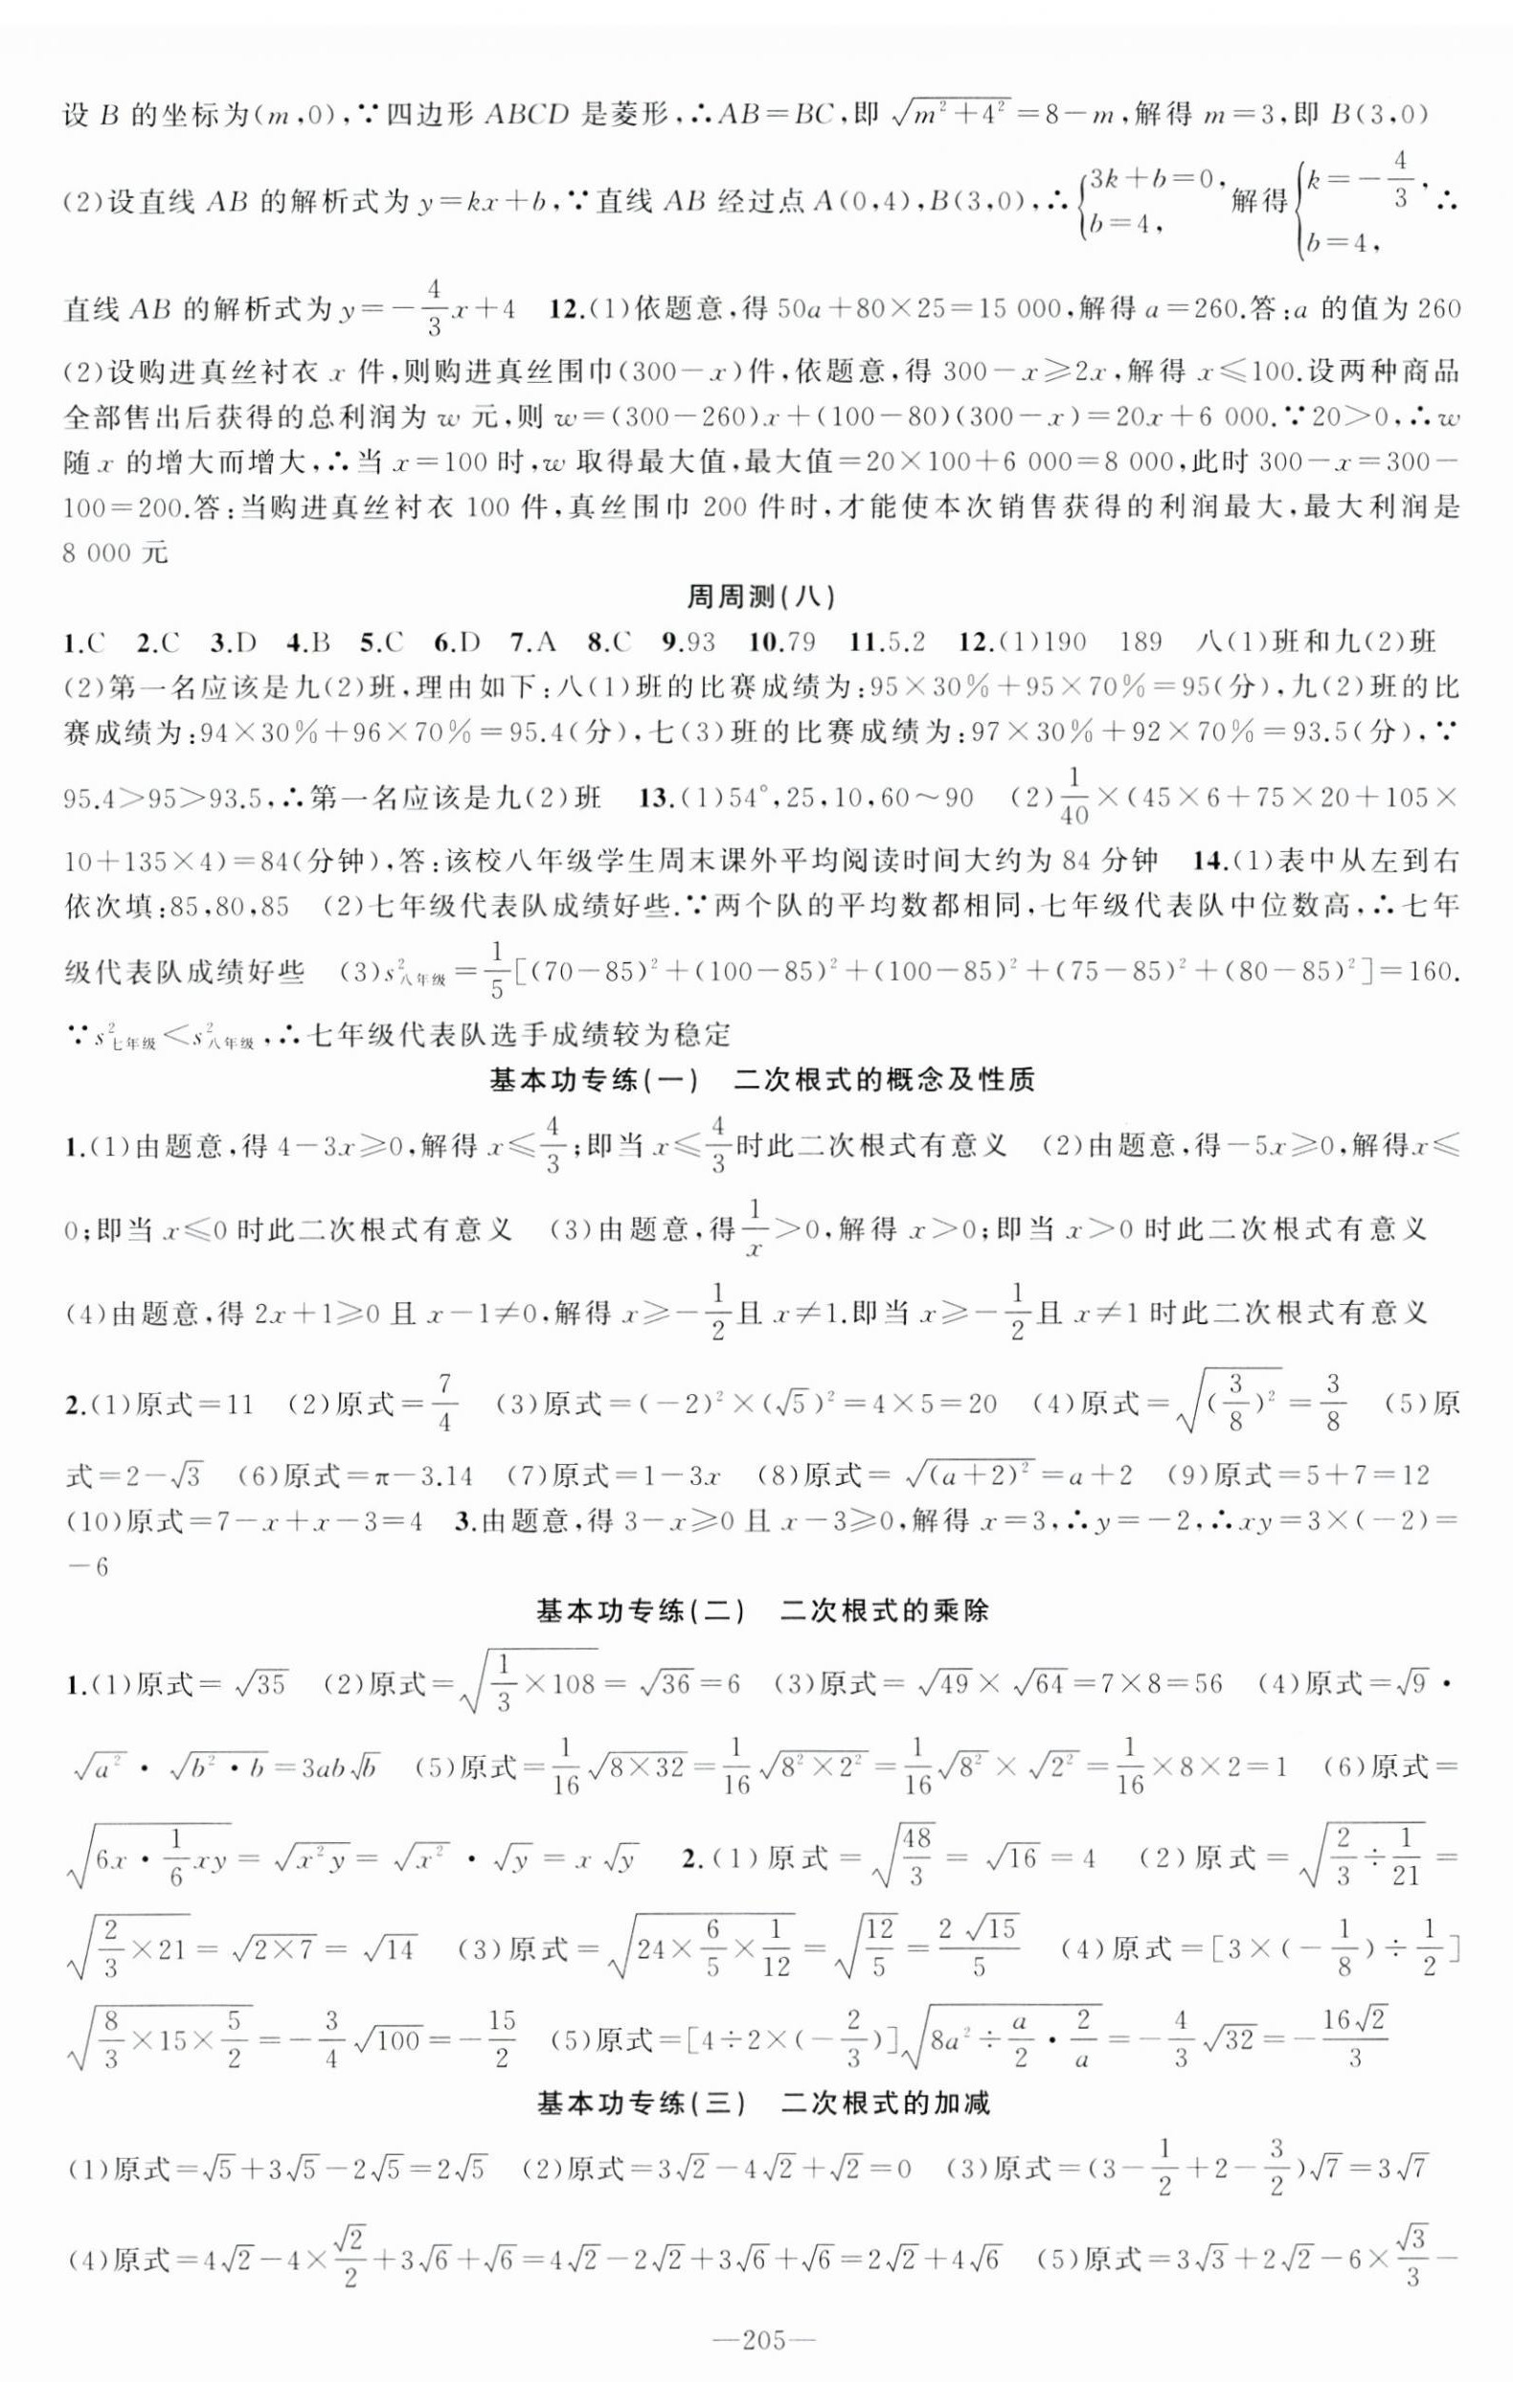 设 B 的坐标为(m,0),∵四边形 ABCD 是菱形,∴AB=BC,即 √(m²+4²)=8-m,解得 m=3,即 B(3,0)
(2)设直线 AB 的解析式为 y=kx+b,∵直线 AB 经过点 A(0,4),B(3,0),∴{3k+b=0, b=4, 解得{k=-4/3, b=4, ∴
直线 AB 的解析式为 y=-4/3x+4 12.(1)依题意,得 50a+80×25=15 000,解得 a=260.答:a 的值为 260
(2)设购进真丝衬衣 x 件,则购进真丝围巾(300-x)件,依题意,得 300-x≥2x,解得 x≤100.设两种商品
全部售出后获得的总利润为 w 元,则 w=(300-260)x+(100-80)(300-x)=20x+6 000.∵20>0,∴w
随 x 的增大而增大,∴当 x=100 时,w 取得最大值,最大值=20×100+6 000=8 000,此时 300-x=300-
100=200.答:当购进真丝衬衣 100 件,真丝围巾 200 件时,才能使本次销售获得的利润最大,最大利润是
8 000 元
周周测(八)
1.C 2.C 3.D 4.B 5.C 6.D 7.A 8.C 9.93 10.79 11.5.2 12.(1)190 189 八(1)班和九(2)班
(2)第一名应该是九(2)班,理由如下:八(1)班的比赛成绩为:95×30%+95×70%=95(分),九(2)班的比
赛成绩为:94×30%+96×70%=95.4(分),七(3)班的比赛成绩为:97×30%+92×70%=93.5(分),∵
95.4>95>93.5,∴第一名应该是九(2)班 13.(1)54°,25,10,60~90 (2)1/40×(45×6+75×20+105×
10+135×4)=84(分钟),答:该校八年级学生周末课外平均阅读时间大约为 84 分钟 14.(1)表中从左到右
依次填:85,80,85 (2)七年级代表队成绩好些.∵两个队的平均数都相同,七年级代表队中位数高,∴七年
级代表队成绩好些 (3)s²八年级=1/5[(70-85)²+(100-85)²+(100-85)²+(75-85)²+(80-85)²]=160.
∵s²七年级<s²八年级,∴七年级代表队选手成绩较为稳定
基本功专练(一) 二次根式的概念及性质
1.(1)由题意,得 4-3x≥0,解得 x≤4/3;即当 x≤4/3时此二次根式有意义 (2)由题意,得-5x≥0,解得x≤
0;即当 x≤0 时此二次根式有意义 (3)由题意,得1/x>0,解得 x>0;即当 x>0 时此二次根式有意义
(4)由题意,得 2x+1≥0 且 x-1≠0,解得 x≥-1/2且 x≠1.即当 x≥-1/2且 x≠1 时此二次根式有意义
2.(1)原式=11 (2)原式=7/4 (3)原式=(-2)²×(√5)²=4×5=20 (4)原式=√((3/8)²)=3/8 (5)原
式=2-√3 (6)原式=π-3.14 (7)原式=1-3x (8)原式=√((a+2)²)=a+2 (9)原式=5+7=12
(10)原式=7-x+x-3=4 3.由题意,得 3-x≥0 且 x-3≥0,解得 x=3,∴y=-2,∴xy=3×(-2)=
-6
基本功专练(二) 二次根式的乘除
1.(1)原式=√35 (2)原式=√(1/3×108)=√36=6 (3)原式=√49×√64=7×8=56 (4)原式=√9·
√(a²)·√(b²·b)=3ab√b (5)原式=1/16√(8×32)=1/16√(8²×2²)=1/16√(8²)×√(2²)=1/16×8×2=1 (6)原式=
√(6x·1/6xy)=√(x²y)=√(x²)·√y=x√y 2.(1)原式=√(48/3)=√16=4 (2)原式=√(2/3÷1/21)=
√(2/3×21)=√(2×7)=√14 (3)原式=√(24×6/5×1/12)=√(12/5)=2√15/5 (4)原式=[3×(-1/8)÷1/2]
√(8/3×15×5/2)=-3/4√100=-15/2 (5)原式=[4÷2×(-2/3)]√(8a²÷a/2·2/a)=-4/3√32=-16√2/3
基本功专练(三) 二次根式的加减
(1)原式=√5+3√5-2√5=2√5 (2)原式=3√2-4√2+√2=0 (3)原式=(3-1/2+2-3/2)√7=3√7
(4)原式=4√2-4×√2/2+3√6+√6=4√2-2√2+3√6+√6=2√2+4√6 (5)原式=3√3+2√2-6×√3/3-
—205—